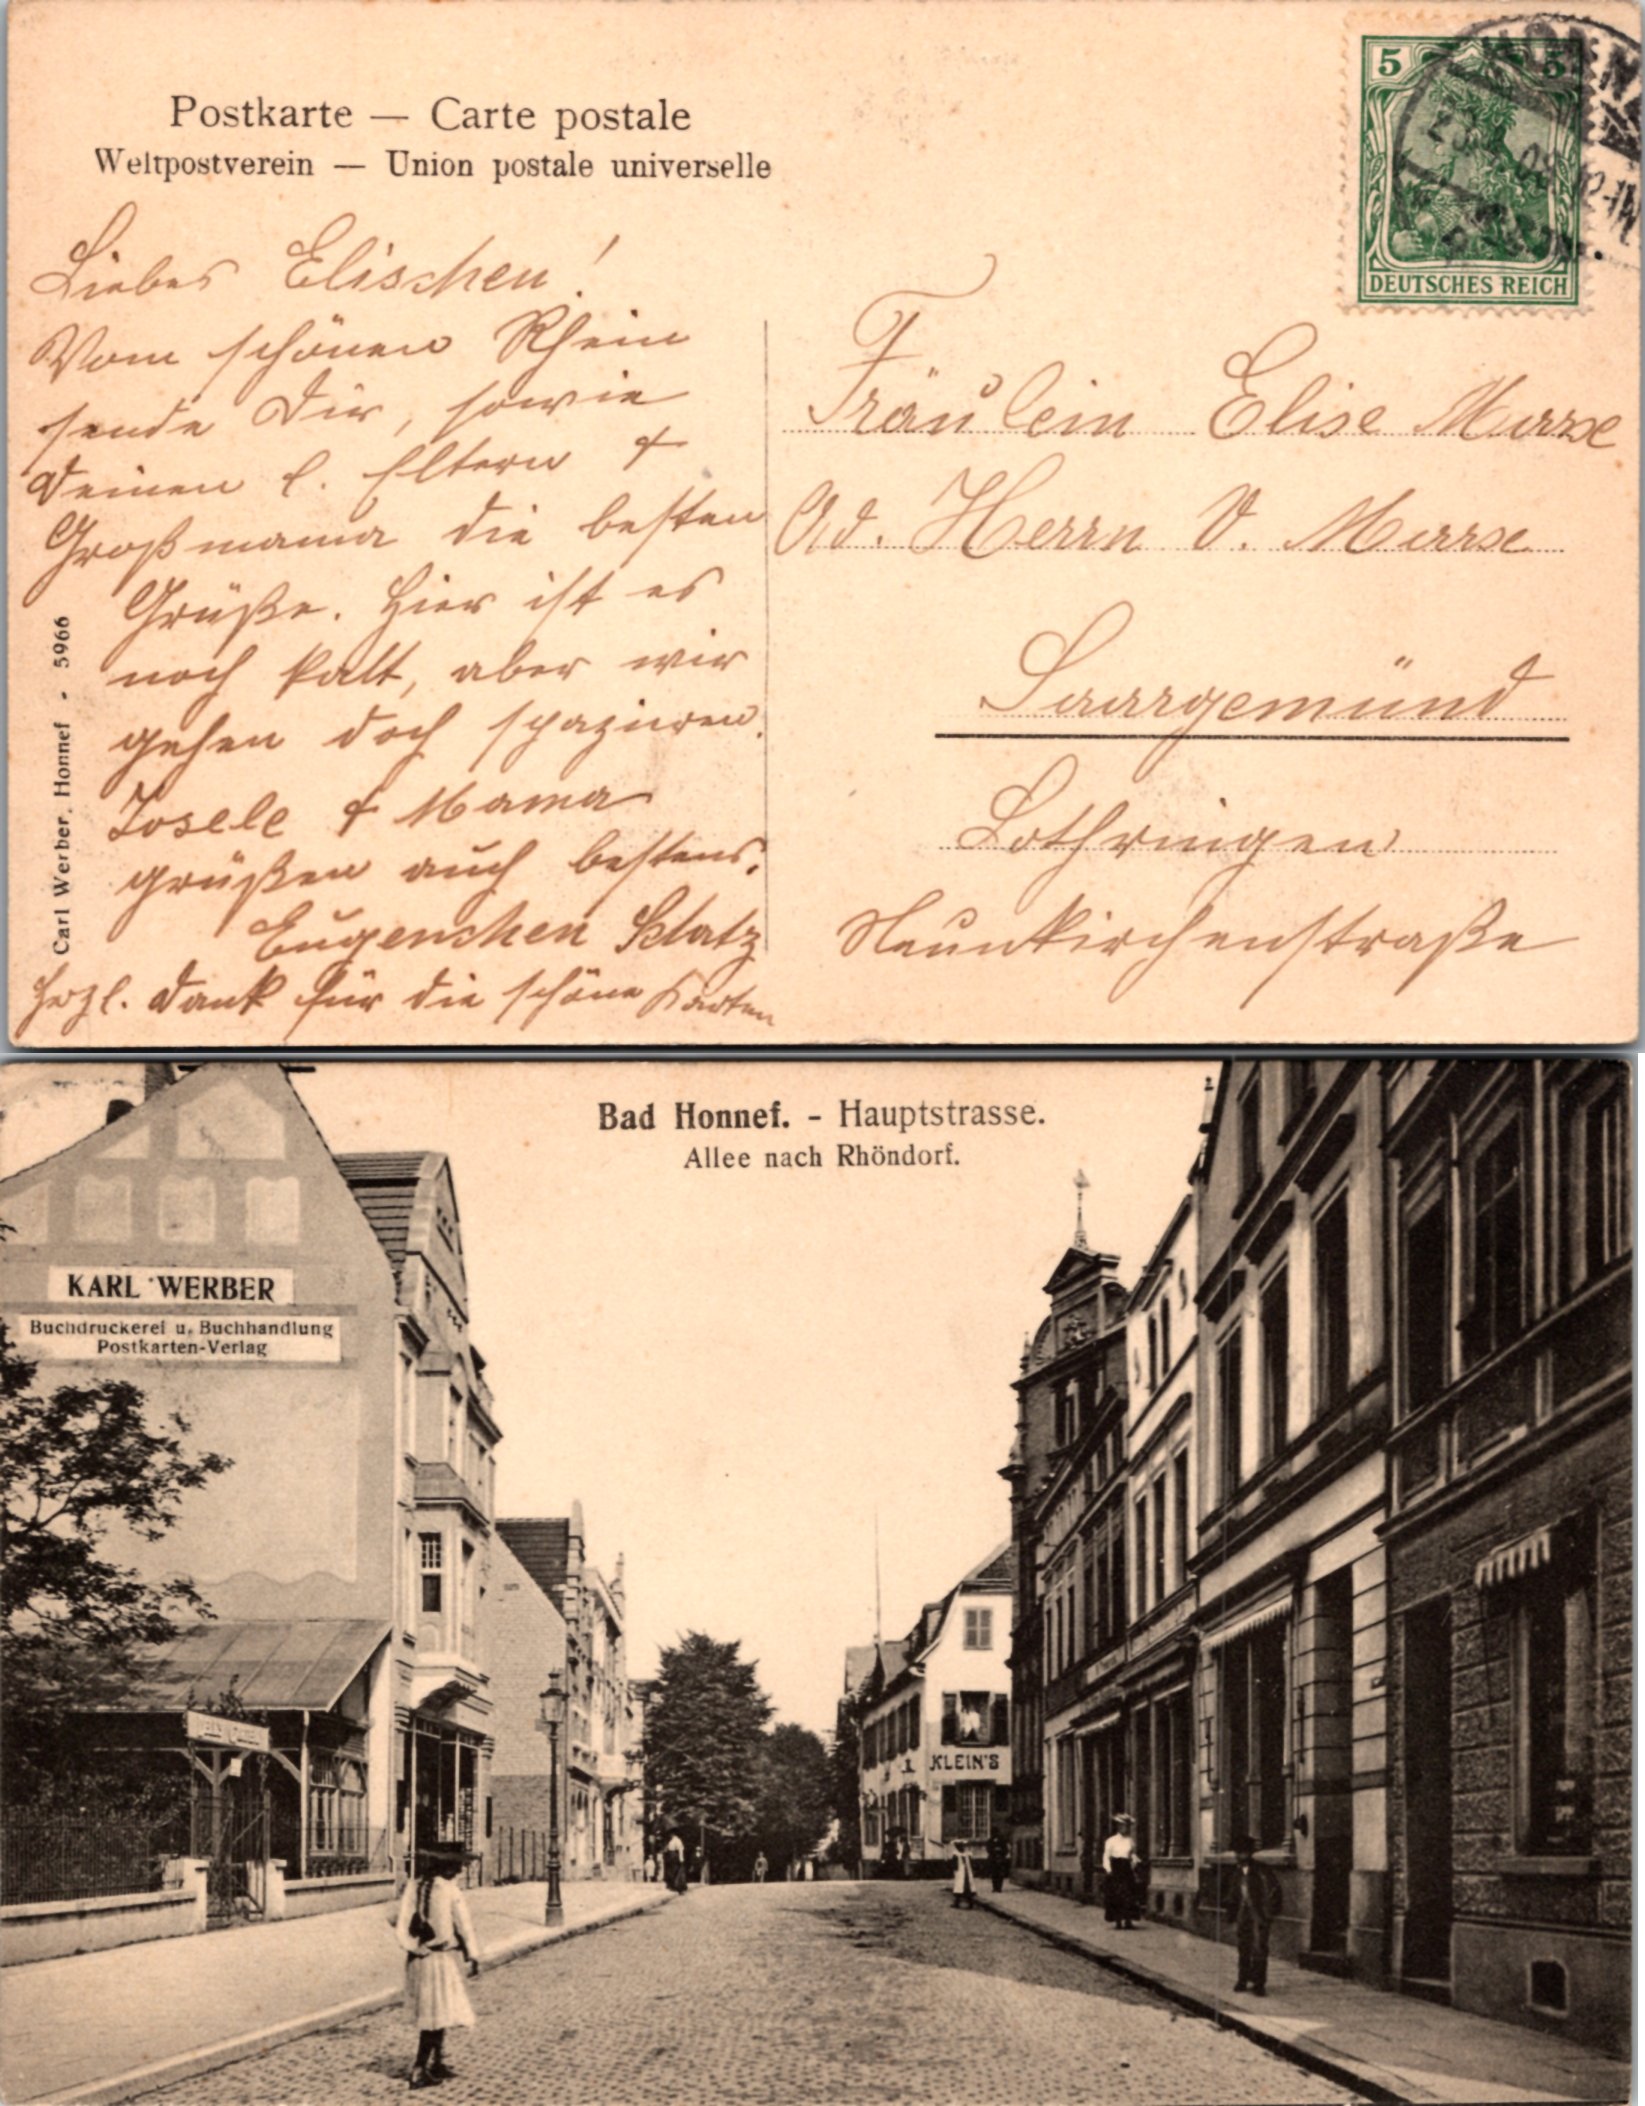 Postkarte — Carte postale
Weltpostverein — Union postale universelle
5 5
DEUTSCHES REICH
Liebes Elischen!
Vom schönen Rhein
sende Dir, sowie
Deinen l. Eltern &
Großmama die besten
Grüße. Hier ist es
noch kalt, aber wir
gehen doch spazieren.
Josele & Mama
grüßen auch bestens.
Eugenchen
Herzl. Dank für die schöne Karten
Carl Werber, Honnef - 5966
Fräulein Elise
Ad. Herrn V.
Saargemünd
Lothringen
Neunkirchenstraße
Bad Honnef. - Hauptstrasse.
Allee nach Rhöndorf.
KARL WERBER
Buchdruckerei u. Buchhandlung
Postkarten-Verlag
KLEIN'S